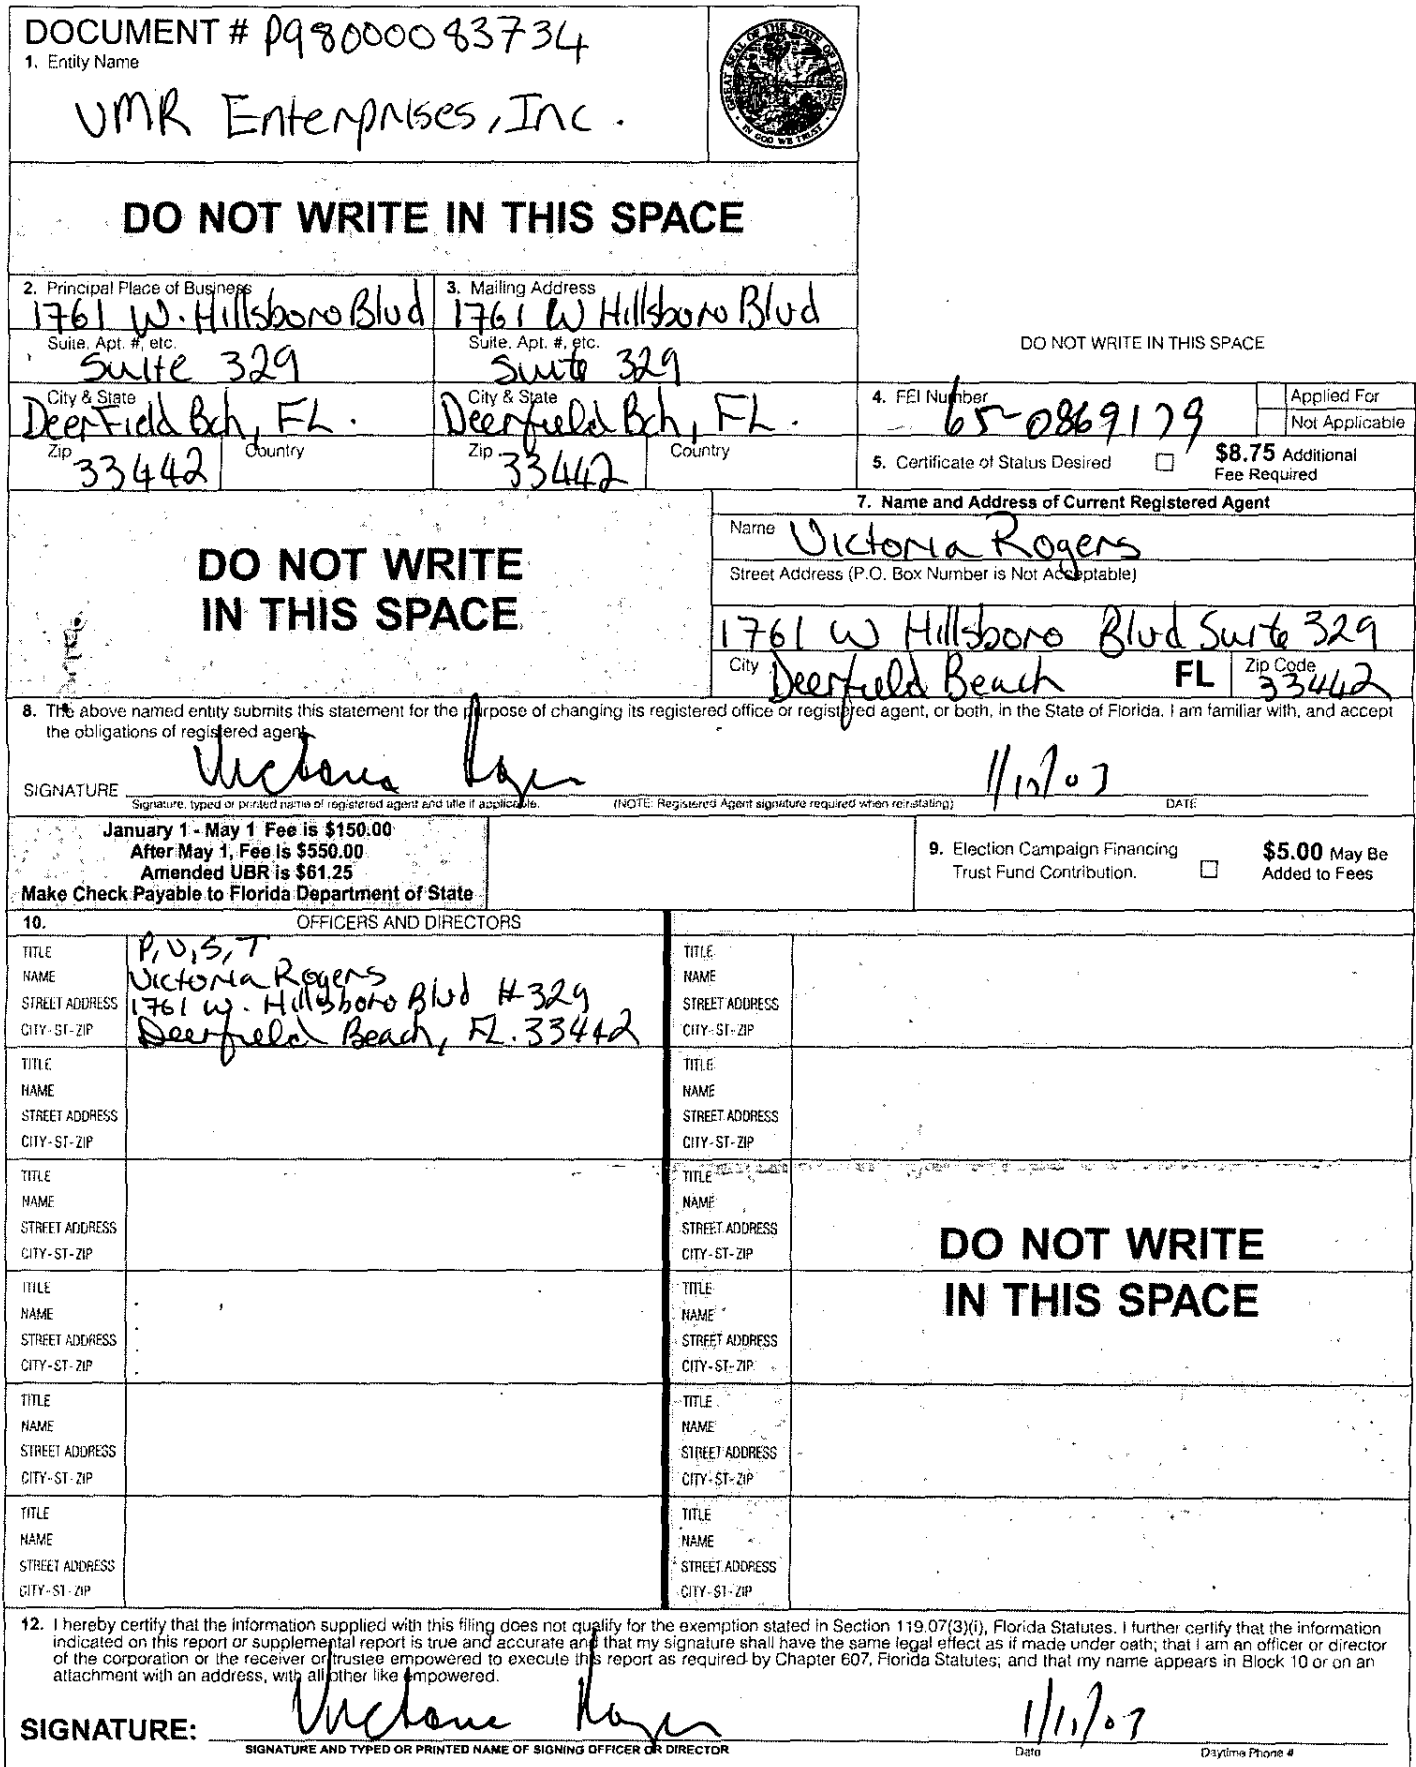 DOCUMENT # P98000083734
1. Entity Name
VMR Enterprises, Inc.
GREAT SEAL OF THE STATE OF FLORIDA
IN GOD WE TRUST
DO NOT WRITE IN THIS SPACE
2. Principal Place of Business
1761 W. Hillsboro Blvd
3. Mailing Address
1761 W Hillsboro Blvd
Suite, Apt. #, etc.
Suite 329
Suite, Apt. #, etc.
Suite 329
DO NOT WRITE IN THIS SPACE
City & State
Deerfield Bch, FL.
City & State
Deerfield Bch, FL.
4. FEI Number
65-0869179
Applied For
Not Applicable
Zip
33442
Country
Zip
33442
Country
5. Certificate of Status Desired
$8.75 Additional
Fee Required
DO NOT WRITE
IN THIS SPACE
7. Name and Address of Current Registered Agent
Name Victoria Rogers
Street Address (P.O. Box Number is Not Acceptable)
1761 W Hillsboro Blvd Suite 329
City Deerfield Beach FL
Zip Code
33442
8. The above named entity submits this statement for the purpose of changing its registered office or registered agent, or both, in the State of Florida. I am familiar with, and accept
the obligations of registered agent.
SIGNATURE Victoria Rogers
Signature, typed or printed name of registered agent and title if applicable.
(NOTE: Registered Agent signature required when reinstating)
DATE
January 1 - May 1 Fee is $150.00
After May 1, Fee is $550.00
Amended UBR is $61.25
Make Check Payable to Florida Department of State
9. Election Campaign Financing
Trust Fund Contribution.
$5.00 May Be
Added to Fees
10. OFFICERS AND DIRECTORS
TITLE P,V,S,T
NAME Victoria Rogers
STREET ADDRESS 1761 W. Hillsboro Blvd #329
CITY-ST-ZIP Deerfield Beach, FL. 33442
TITLE
NAME
STREET ADDRESS
CITY-ST-ZIP
TITLE
NAME
STREET ADDRESS
CITY-ST-ZIP
TITLE
NAME
STREET ADDRESS
CITY-ST-ZIP
TITLE
NAME
STREET ADDRESS
CITY-ST-ZIP
TITLE
NAME
STREET ADDRESS
CITY-ST-ZIP
TITLE
NAME
STREET ADDRESS
CITY-ST-ZIP
TITLE
NAME
STREET ADDRESS
CITY-ST-ZIP
TITLE
NAME
STREET ADDRESS
CITY-ST-ZIP
TITLE
NAME
STREET ADDRESS
CITY-ST-ZIP
TITLE
NAME
STREET ADDRESS
CITY-ST-ZIP
TITLE
NAME
STREET ADDRESS
CITY-ST-ZIP
DO NOT WRITE
IN THIS SPACE
12. I hereby certify that the information supplied with this filing does not qualify for the exemption stated in Section 119.07(3)(i), Florida Statutes. I further certify that the information
indicated on this report or supplemental report is true and accurate and that my signature shall have the same legal effect as if made under oath; that I am an officer or director
of the corporation or the receiver or trustee empowered to execute this report as required by Chapter 607, Florida Statutes; and that my name appears in Block 10 or on an
attachment with an address, with all other like empowered.
SIGNATURE: Victoria Rogers
SIGNATURE AND TYPED OR PRINTED NAME OF SIGNING OFFICER OR DIRECTOR
Date
Daytime Phone #